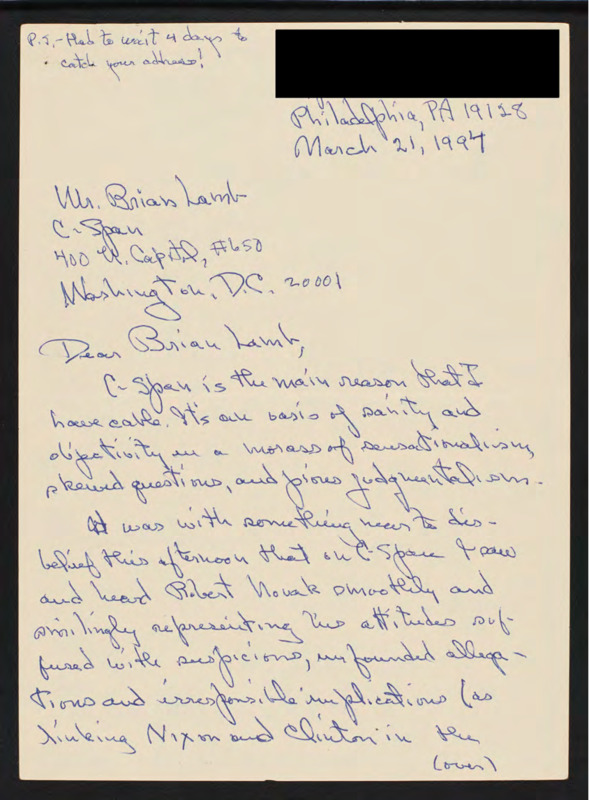 P.S.-Had to wait 4 days to
catch your address!
Philadelphia, PA 19128
March 21, 1994
Mr. Brian Lamb
C-Span
400 N. Capitol, #650
Washington, D.C. 20001
Dear Brian Lamb,
C-Span is the main reason that I
have cable. It's an oasis of sanity and
objectivity in a morass of sensationalism,
skewed questions, and pious judgmentalism.
It was with something near to dis-
belief this afternoon that on C-Span I saw
and heard Robert Novak smoothly and
smilingly representing his attitudes suf-
fused with suspicions, unfounded allega-
tions and irresponsible implications (as
linking Nixon and Clinton in the
(over)